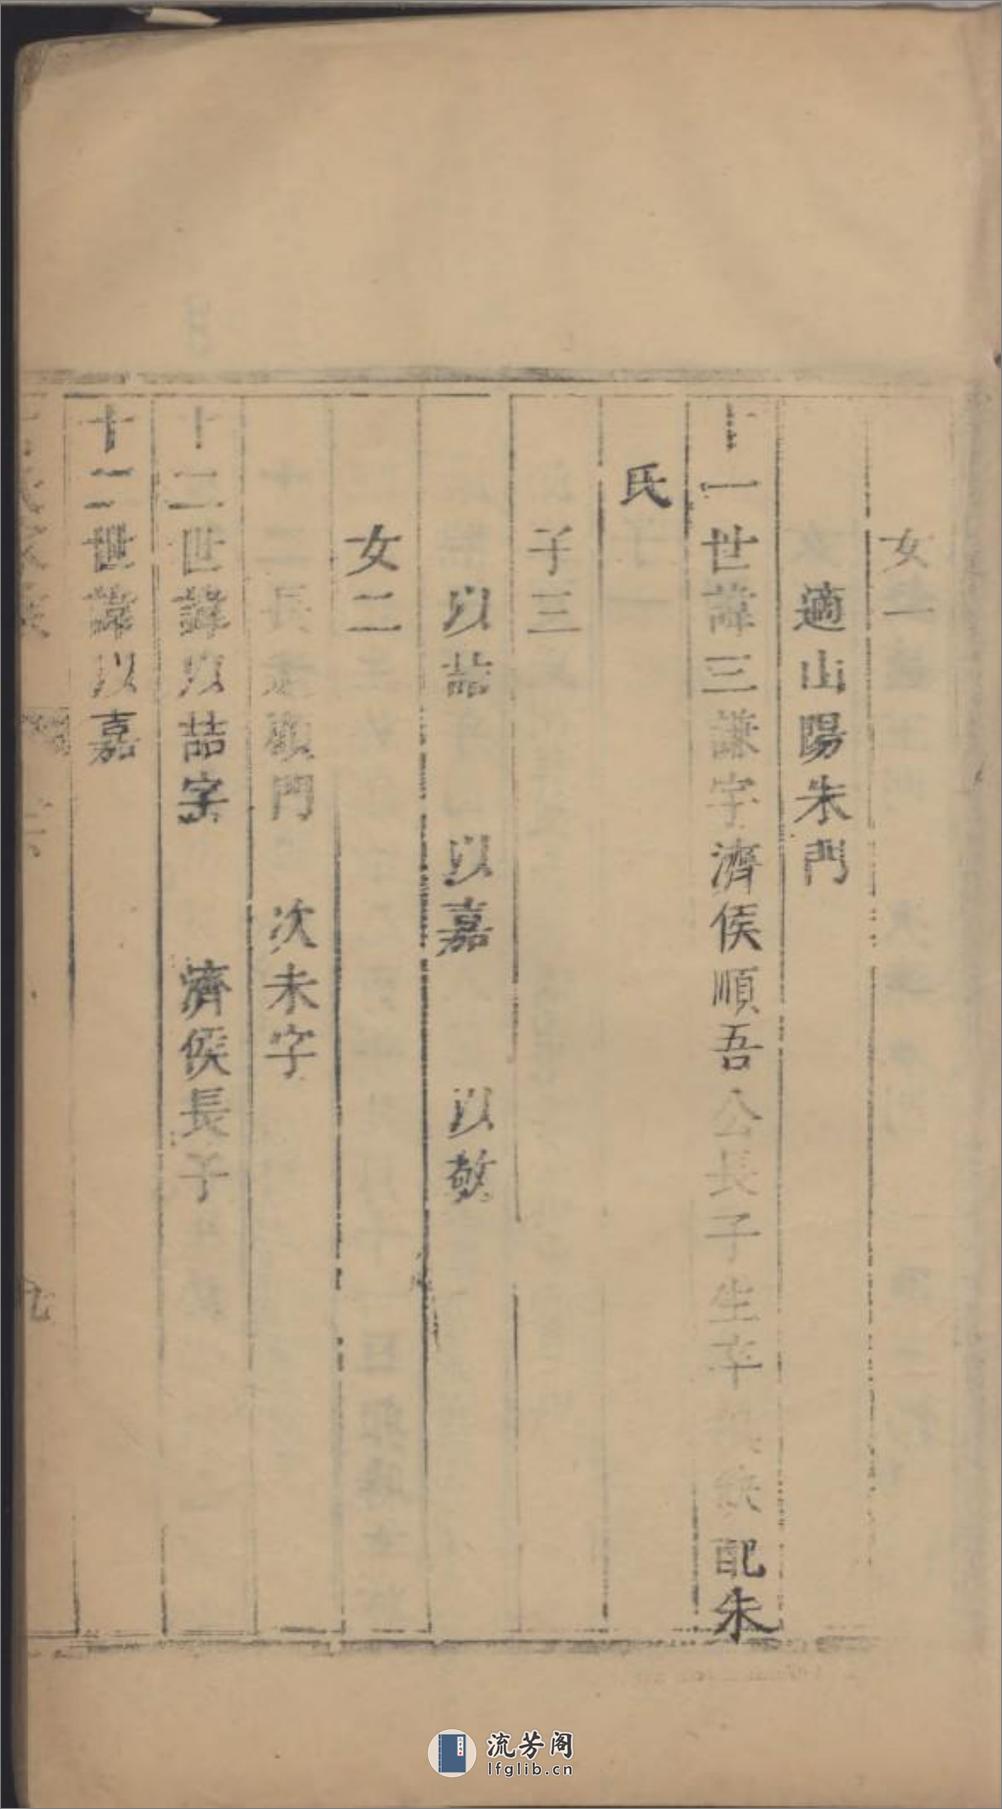 女一
適山陽朱門
十一世諱三謙字濟侯順吾公長子生卒失配朱
氏
子三
以喆　以嘉　以敬
女二
長適顧門　次未字
十二世諱以喆字　濟侯長子
十二世諱以嘉
九
流芳阁
lfglib.cn